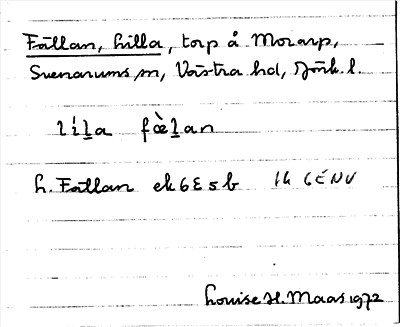 Fällan, Lilla, torp å Morarp,
Svenarums sn, Västra hd, Jönk. l.
lıla fæ̀lan
L. Fällan ek 6E5b Ik 6ÉNV
Louise H. Maas 1972